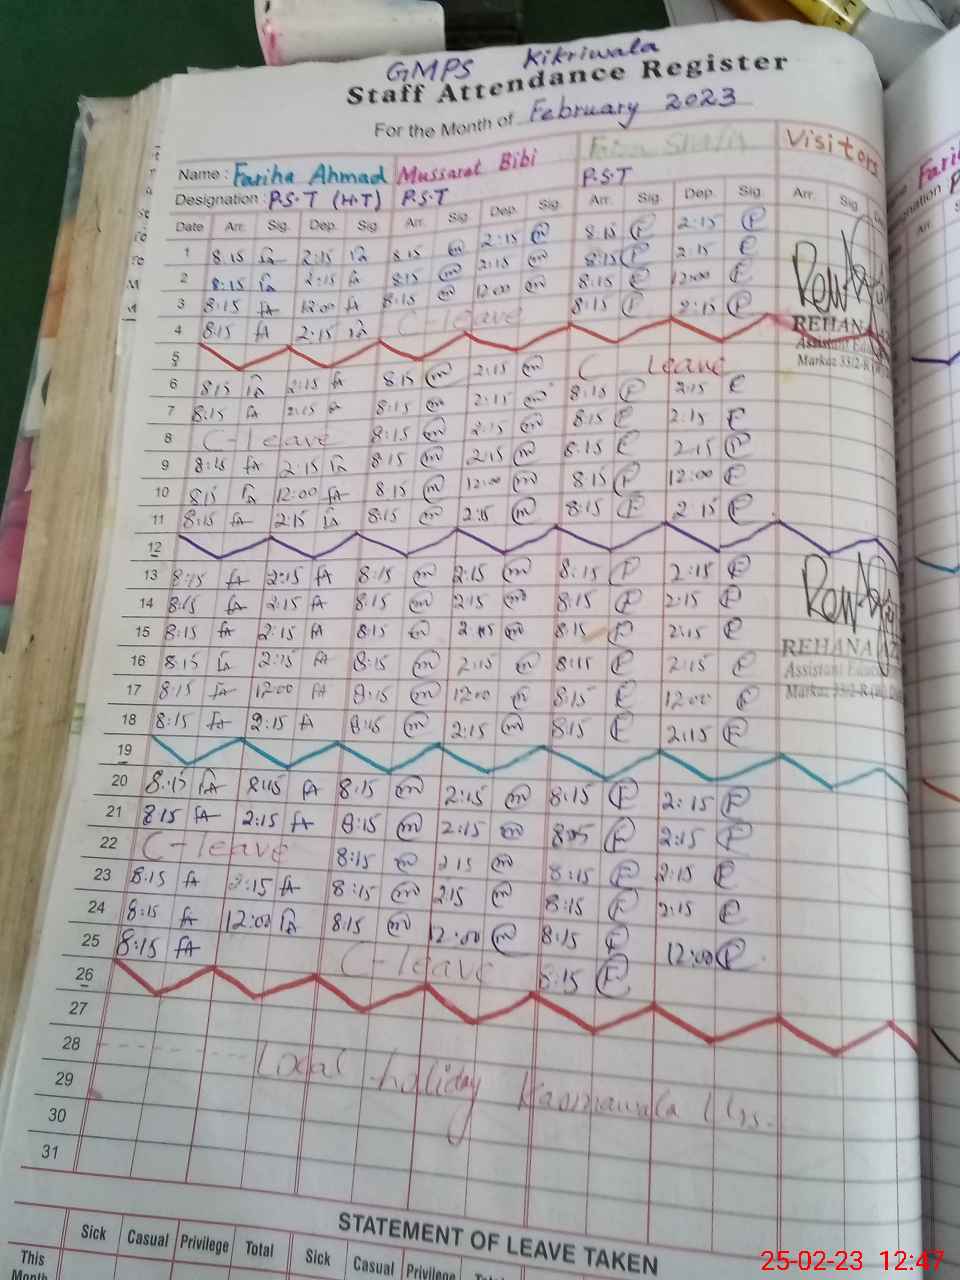 GMPS Kikriwala
Staff Attendance Register
For the Month of February 2023
Name : Fariha Ahmad Mussarat Bibi Visitors
Designation : P.S.T (H.T) P.S.T P.S.T
Date Arr. Sig. Dep. Sig Arr. Sig Dep. Sig. Arr. Sig. Dep. Sig. Arr. Sig.
1 8:15 fa 2:15 fa 8:15 m 2:15 m 8:15 F 2:15 F
2 8:15 fa 2:15 fa 8:15 m 2:15 m 8:15 F 2:15 F
3 8:15 fA 12:00 fA 8:15 m 12:00 m 8:15 F 12:00 F
4 8:15 fA 2:15 fa C-leave 8:15 F 2:15 F
REHANA
Markaz 33/2-R
5
6 8:15 fa 2:15 fA 8:15 m 2:15 m C Leave
7 8:15 fA 2:15 fA 8:15 m 2:15 m 8:15 F 2:15 F
8 C-leave 8:15 m 2:15 m 8:15 F 2:15 F
9 8:15 fA 2:15 fa 8:15 m 2:15 m 8:15 F 2:15 F
10 8:15 fa 12:00 fA 8:15 m 12:00 m 8:15 F 12:00 F
11 8:15 fA 2:15 fa 8:15 m 2:15 m 8:15 F 2:15 F
12
13 8:15 fA 2:15 fA 8:15 m 2:15 m 8:15 F 2:15 F
14 8:15 fA 2:15 fA 8:15 m 2:15 m 8:15 F 2:15 F
15 8:15 fA 2:15 fA 8:15 m 2:15 m 8:15 F 2:15 F
REHANA
16 8:15 fa 2:15 fA 8:15 m 2:15 m 8:15 F 2:15 F
Markaz 33/2-R
17 8:15 fA 12:00 fA 8:15 m 12:00 m 8:15 F 12:00 F
18 8:15 fA 2:15 fA 8:15 m 2:15 m 8:15 F 2:15 F
19
20 8:15 fA 8:15 fA 8:15 m 2:15 m 8:15 F 2:15 F
21 8:15 fA 2:15 fA 8:15 m 2:15 m F 2:15 F
22 C-leave 8:15 m 2:15 m 8:15 F 2:15 F
23 8:15 fA 2:15 fA 8:15 m 2:15 m 8:15 F 2:15 F
24 8:15 fA 12:00 fa 8:15 m 12:00 m 8:15 F 12:00 F
25 8:15 fA C-leave 8:15 F
26
27
28 Local holiday
29
30
31
STATEMENT OF LEAVE TAKEN
Sick Casual Privilege Total Sick Casual Privilege
This Month
25-02-23 12:47